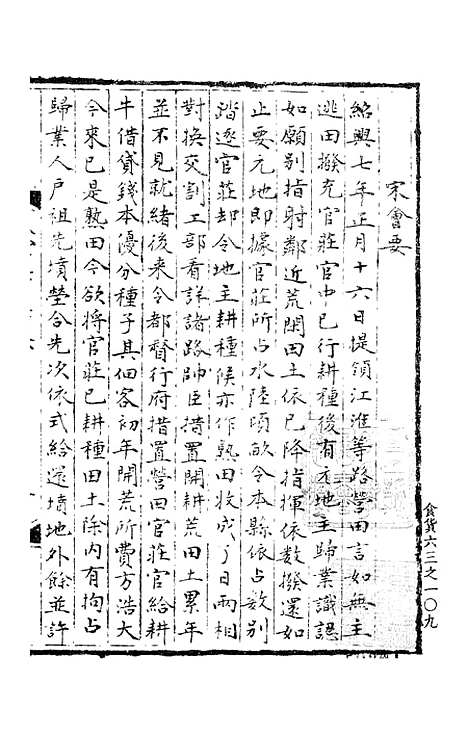 宋會要
紹興七年正月十六日提領江淮等路營田言如無主
逃田撥充官莊官中已行耕種後有元地主歸業識認
如願别指射鄰近荒閑田土依已降指揮依數撥還如
止要元地即據官莊所占水陸頃畝令本縣依占數别
踏逐官莊却令地主耕種候亦作熟田收成了日兩相
對換交割工部看詳諸路帥臣措置開耕荒田土累年
並不見就緒後來令都督行府措置營田官莊官給耕
牛借貸錢本優分種子其佃客初年開荒所費方浩大
今來已是熟田今欲將官莊已耕種田土除內有拘占
歸業人戶祖先墳塋合先次依式給還墳地外餘並許
食貨六三之一〇九